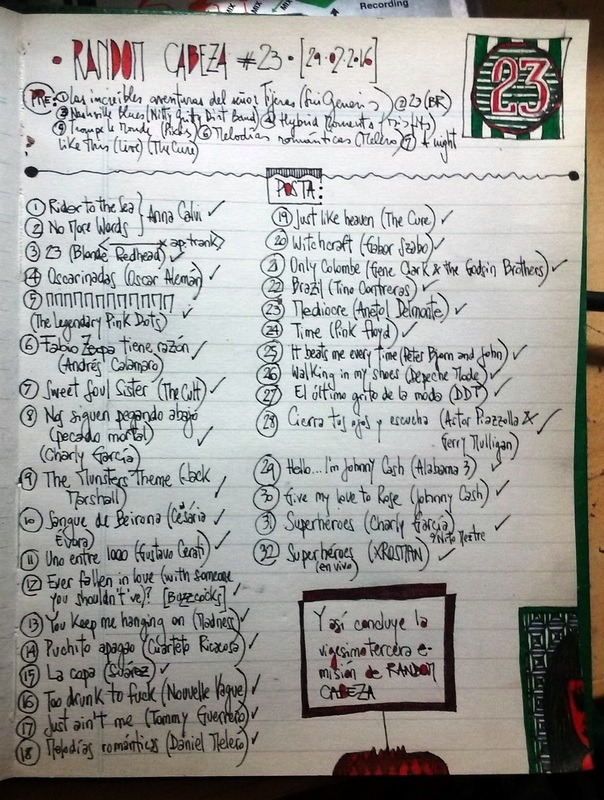 Recording
• RANDOM CABEZA #23 • [29·02·2016]
23
PRE: ① Las increíbles aventuras del señor Tijeras (Sui Generis) ② 23 (BR)
③ Nashville Blues (Nitty Gritty Dirt Band) ④ Hybrid Moments (Misfits)
⑤ Trompe le Monde (Pixies) ⑥ Melodías románticas (Melero) ⑦ A night
like this (live) (The Cure)
POSTA:
① Rider to the Sea
② No More Words } Anna Calvi ✓
③ 23 (Blonde Redhead) ✓
④ Oscarinadas (Oscar Alemán) ✓
⑤
(The Legendary Pink Dots) ✓
⑥ Fabio Zerpa tiene razón
(Andrés Calamaro) ✓
⑦ Sweet Soul Sister (The Cult) ✓
⑧ Nos siguen pegando abajo
(pecado mortal)
(Charly García) ✓
⑨ The Munsters Theme (Jack
Marshall) ✓
⑩ Sangue de Beirona (Cesária
Evora) ✓
⑪ Uno entre 1000 (Gustavo Cerati) ✓
⑫ Ever fallen in love (with someone
you shouldn't've)? [Buzzcocks] ✓
⑬ You keep me hanging on (Madness) ✓
⑭ Puchito apagao (Cuarteto Ricacosa) ✓
⑮ La copa (Suárez) ✓
⑯ Too drunk to fuck (Nouvelle Vague) ✓
⑰ Just ain't me (Tommy Guerrero) ✓
⑱ Melodías románticas (Daniel Melero) ✓
⑲ Just like heaven (The Cure) ✓
⑳ Witchcraft (Gabor Szabo) ✓
㉑ Only Colombe (Gene Clark & the Godsin Brothers) ✓
㉒ Brazil (Tino Contreras) ✓
㉓ Mediocre (Anatol Delmonte) ✓
㉔ Time (Pink Floyd) ✓
㉕ It beats me every time (Peter Bjorn and John) ✓
㉖ Walking in my shoes (Depeche Mode) ✓
㉗ El último grito de la moda (DDT) ✓
㉘ Cierra tus ojos y escucha (Astor Piazzolla &
Gerry Mulligan) ✓
㉙ Hello... I'm Johnny Cash (Alabama 3) ✓
㉚ Give my love to Rose (Johnny Cash) ✓
㉛ Superhéroes (Charly García) ✓
& Nito Mestre
㉜ Superhéroes (XROMAN) ✓
(en vivo)
Y así concluye la
vigesimotercera e-
misión de RANDOM
CABEZA